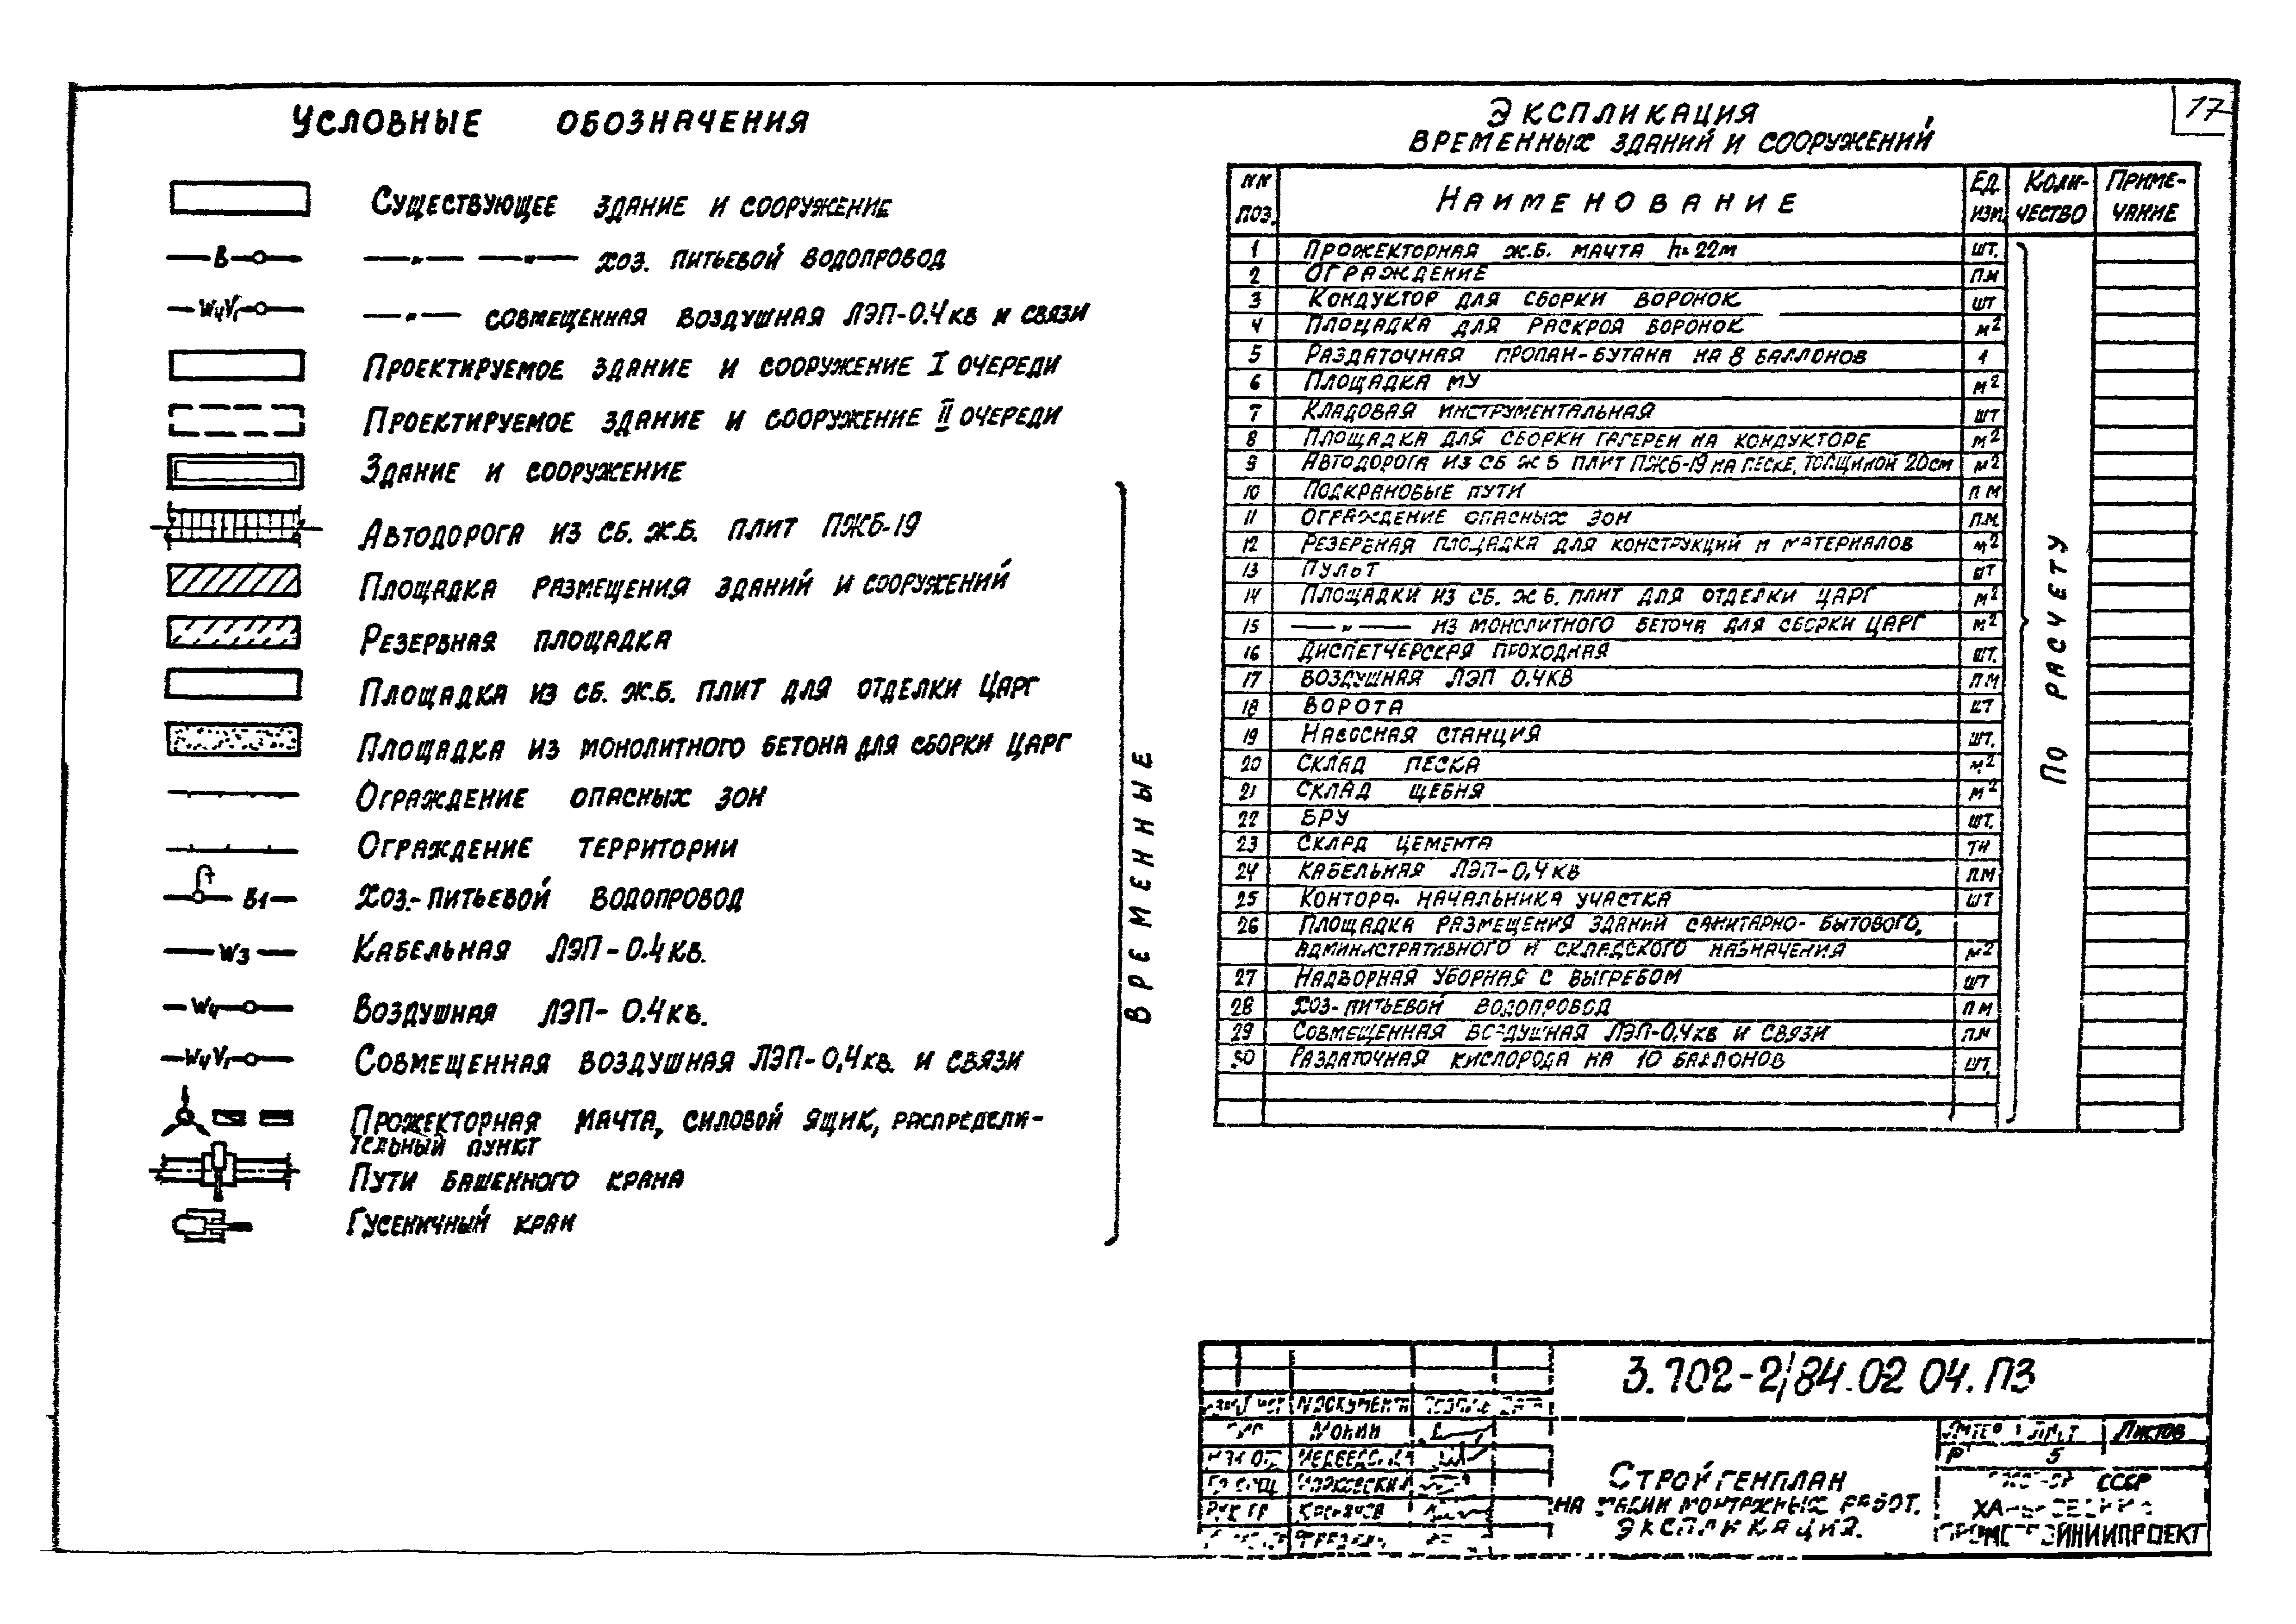 17
Условные обозначения
Существующее здание и сооружение
В —"— —"— хоз. питьевой водопровод
W4V1 —"— совмещенная воздушная ЛЭП-0.4кв и связи
Проектируемое здание и сооружение I очереди
Проектируемое здание и сооружение II очереди
Здание и сооружение
Автодорога из сб. ж.б. плит ПЖБ-19
Площадка размещения зданий и сооружений
Резервная площадка
Площадка из сб. ж.б. плит для отделки царг
Площадка из монолитного бетона для сборки царг
Ограждение опасных зон
Ограждение территории
В1 Хоз.-питьевой водопровод
W3 Кабельная ЛЭП-0.4кв.
W4 Воздушная ЛЭП-0.4кв.
W4V1 Совмещенная воздушная ЛЭП-0,4кв. и связи
Прожекторная мачта, силовой ящик, распредели-
тельный пункт
Пути башенного крана
Гусеничный кран
Временные
Экспликация
временных зданий и сооружений
NN поз. Наименование Ед. изм. Коли-чество Приме-чание
1 Прожекторная ж.б. мачта h=22м шт.
2 Ограждение п.м
3 Кондуктор для сборки воронок шт
4 Площадка для раскроя воронок м²
5 Раздаточная пропан-бутана на 8 баллонов 1
6 Площадка МУ м²
7 Кладовая инструментальная шт
8 Площадка для сборки гагереи на кондукторе м²
9 Автодорога из сб ж б плит ПЖБ-19 на песке, толщиной 20см м²
10 Подкрановые пути п м
11 Ограждение опасных зон п.м.
12 Резервная площадка для конструкций и материалов м²
13 Пульт шт
14 Площадки из сб. ж б. плит для отделки царг м²
15 —"— из монолитного бетона для сборки царг м²
16 Диспетчерская проходная шт.
17 Воздушная ЛЭП 0.4кв п м
18 Ворота шт
19 Насосная станция шт.
20 Склад песка м²
21 Склад щебня м²
22 БРУ шт.
23 Склад цемента тн
24 Кабельная ЛЭП-0,4кв п.м
25 Контора начальника участка шт
26 Площадка размещения зданий санитарно-бытового,
административного и складского назначения м²
27 Надворная уборная с выгребом шт
28 Хоз-питьевой водопровод п м
29 Совмещенная воздушная ЛЭП-0,4кв и связи п.м
30 Раздаточная кислорода на 10 баллонов шт.
По расчету
3.702-2/84.02 04.ПЗ
Литер Лист Листов
Р 5
Стройгенплан
на стадии монтажных работ.
Экспликация.
СССР
Промстройниипроект